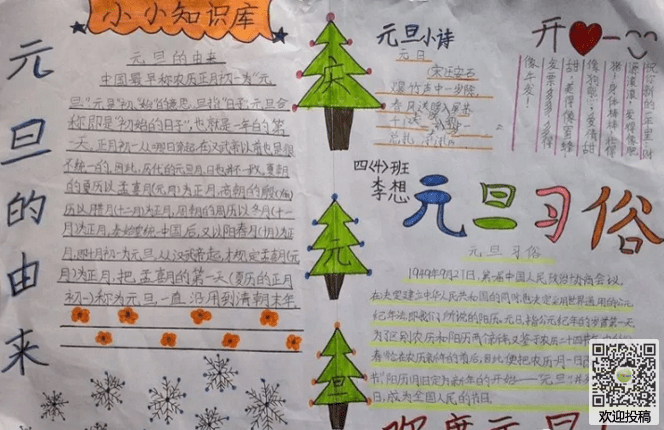 小小知识库
元旦的由来
元旦的由来
中国最早称农历正月初一为"元
旦","元"是"初""始"的意思,旦指"日子",元旦合
称即是"初始的日子",也就是一年的第
一天。正月初一从哪日算起,在汉武帝以前也是很
不统一的。因此,历代的元旦月、日也并不一致。夏朝
的夏历以孟喜月(元月)为正月,商朝的殷历
以腊月(十二月)为正月,周朝的周历以冬月(十一
月)为正月。秦始皇统一中国后,又以阳春月(十月)为正
月,即十月初一为元旦。从汉武帝起,才规定孟喜月(元
月)为正月,把孟喜月的第一天(夏历的正月
初一)称为元旦,一直沿用到清朝末年
庆
元
旦
元旦小诗
元日
宋 王安石
爆竹声中一岁除,
春风送暖入屠苏
开一
四(4)班
李想
元旦习俗
元旦习俗
1949年9月21日,第一届中国人民政治协商会议,
在决定建立中华人民共和国的同时,也决定采用世界通用的公元
纪年法,即我们所说的阳历。元旦,指公元纪年的岁首第一天
为区别农历和阳历两个新年,又鉴于农历二十四节气中的
春恰在农历新年的前后,因此,便把农历正月一日改
节,阳历一月一日定为新年的开始——"元旦",并
日,成为全国人民的节日。
欢度元旦
欢迎投稿